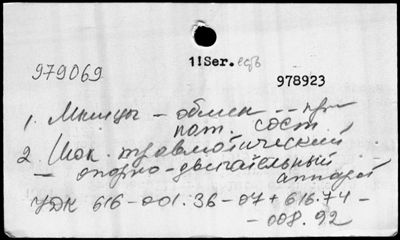 1!Ser.
979069
978923
1. Мышцы – обмен -- при
пат. сост.
2. Шок травматический
– опорно-двигательный
аппарат
УДК 616-001.36-07+616.74-
-008.92